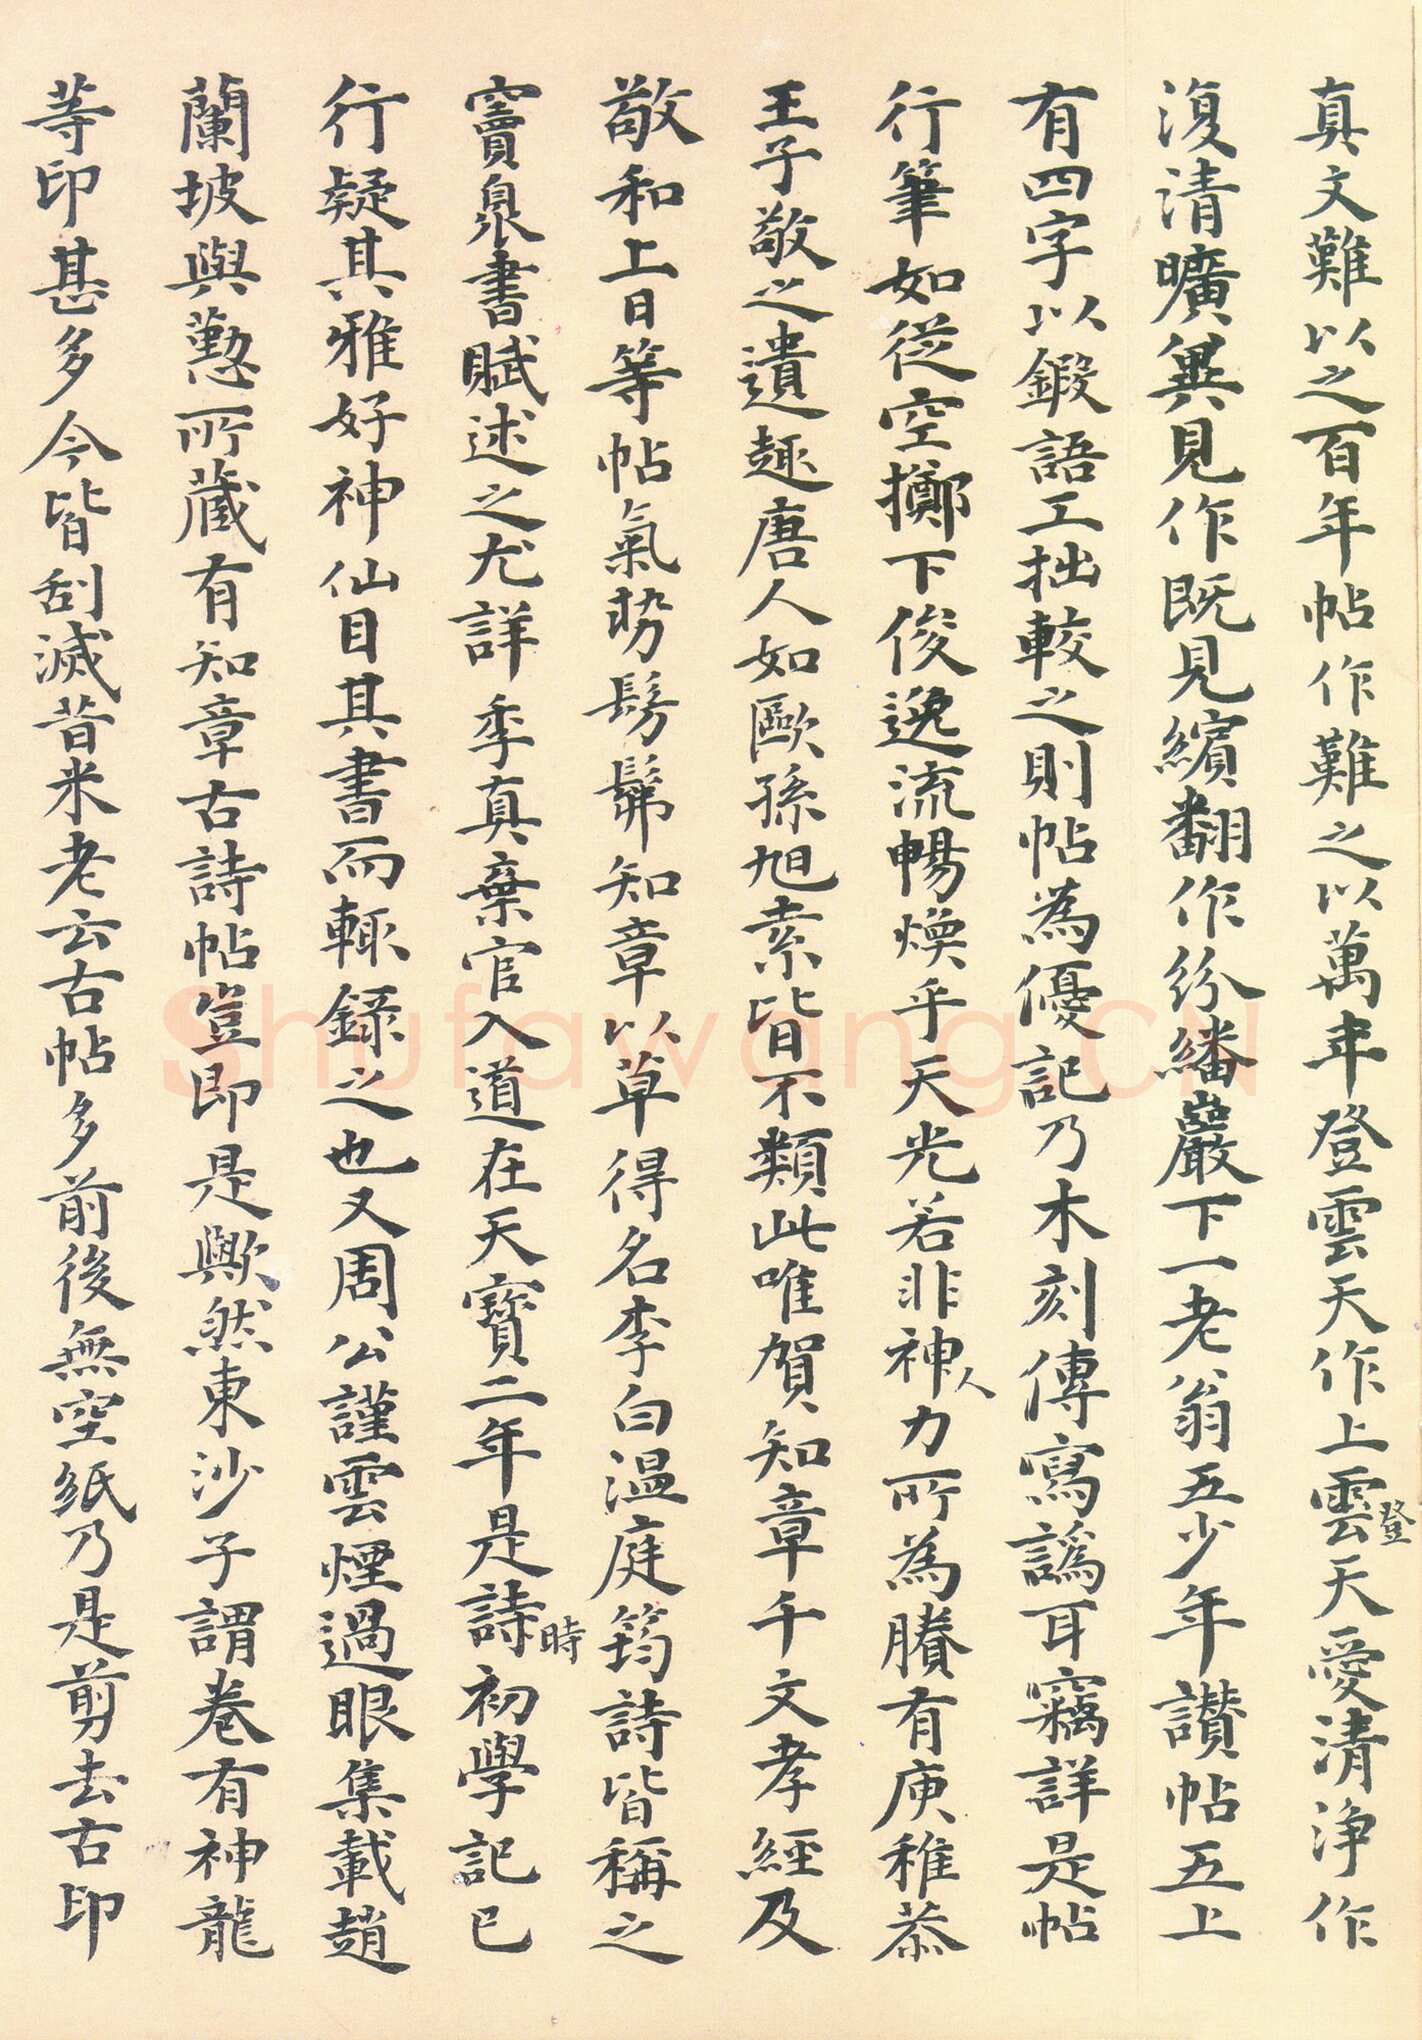 真文難以之百年帖作難之以萬年登雲天作上雲登天愛清淨作
復清曠異見作既見繽翻作紛繙巖下一老翁五少年讚帖五上
有四字以鍛語工拙較之則帖為優記乃木刻傳寫譌耳竊詳是帖
行筆如從空擲下俊逸流暢煥乎天光若非神人力所為賸有庾稚恭
王子敬之遺趣唐人如歐孫旭素皆不類此唯賀知章千文孝經及
敬和上日等帖氣勢髣髴知章以草得名李白溫庭筠詩皆稱之
竇泉書賦述之尤詳季真棄官入道在天寶二年是詩時初學記已
行疑其雅好神仙目其書而輒錄之也又周公謹雲煙過眼集載趙
蘭坡與懃所藏有知章古詩帖豈即是歟然東沙子謂卷有神龍
等印甚多今皆刮滅昔米老云古帖多前後無空紙乃是剪去古印
Shufawang.CN